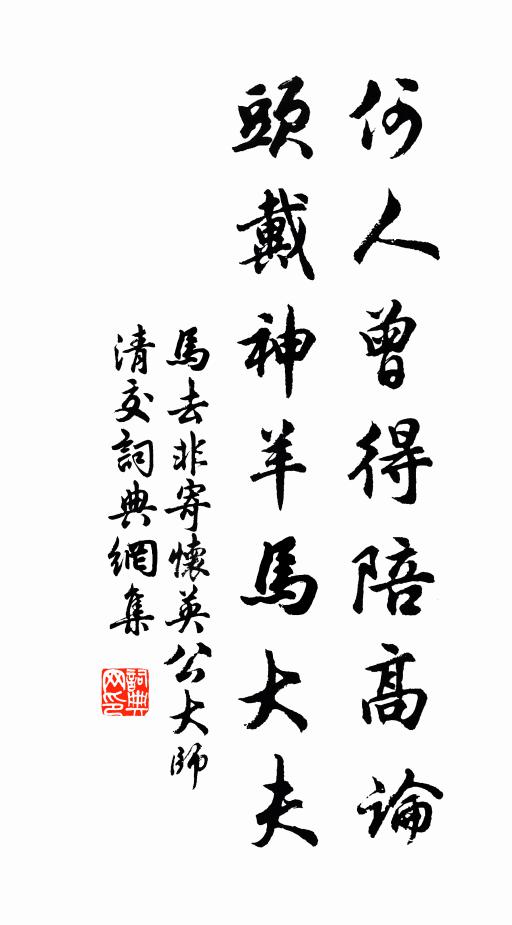 何人曾得陪高論
頭戴神羊馬大夫
馬去非寄懷英公大師
清交詞典網集
詞典
网印